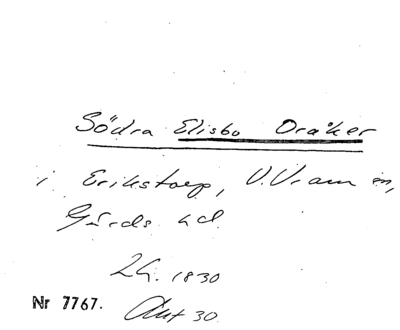 Södra Elisbo Oråker
i Erikstorp, V. Vram sn,
Gärds hd.
LG. 1830
Nr 7767. Akt 30